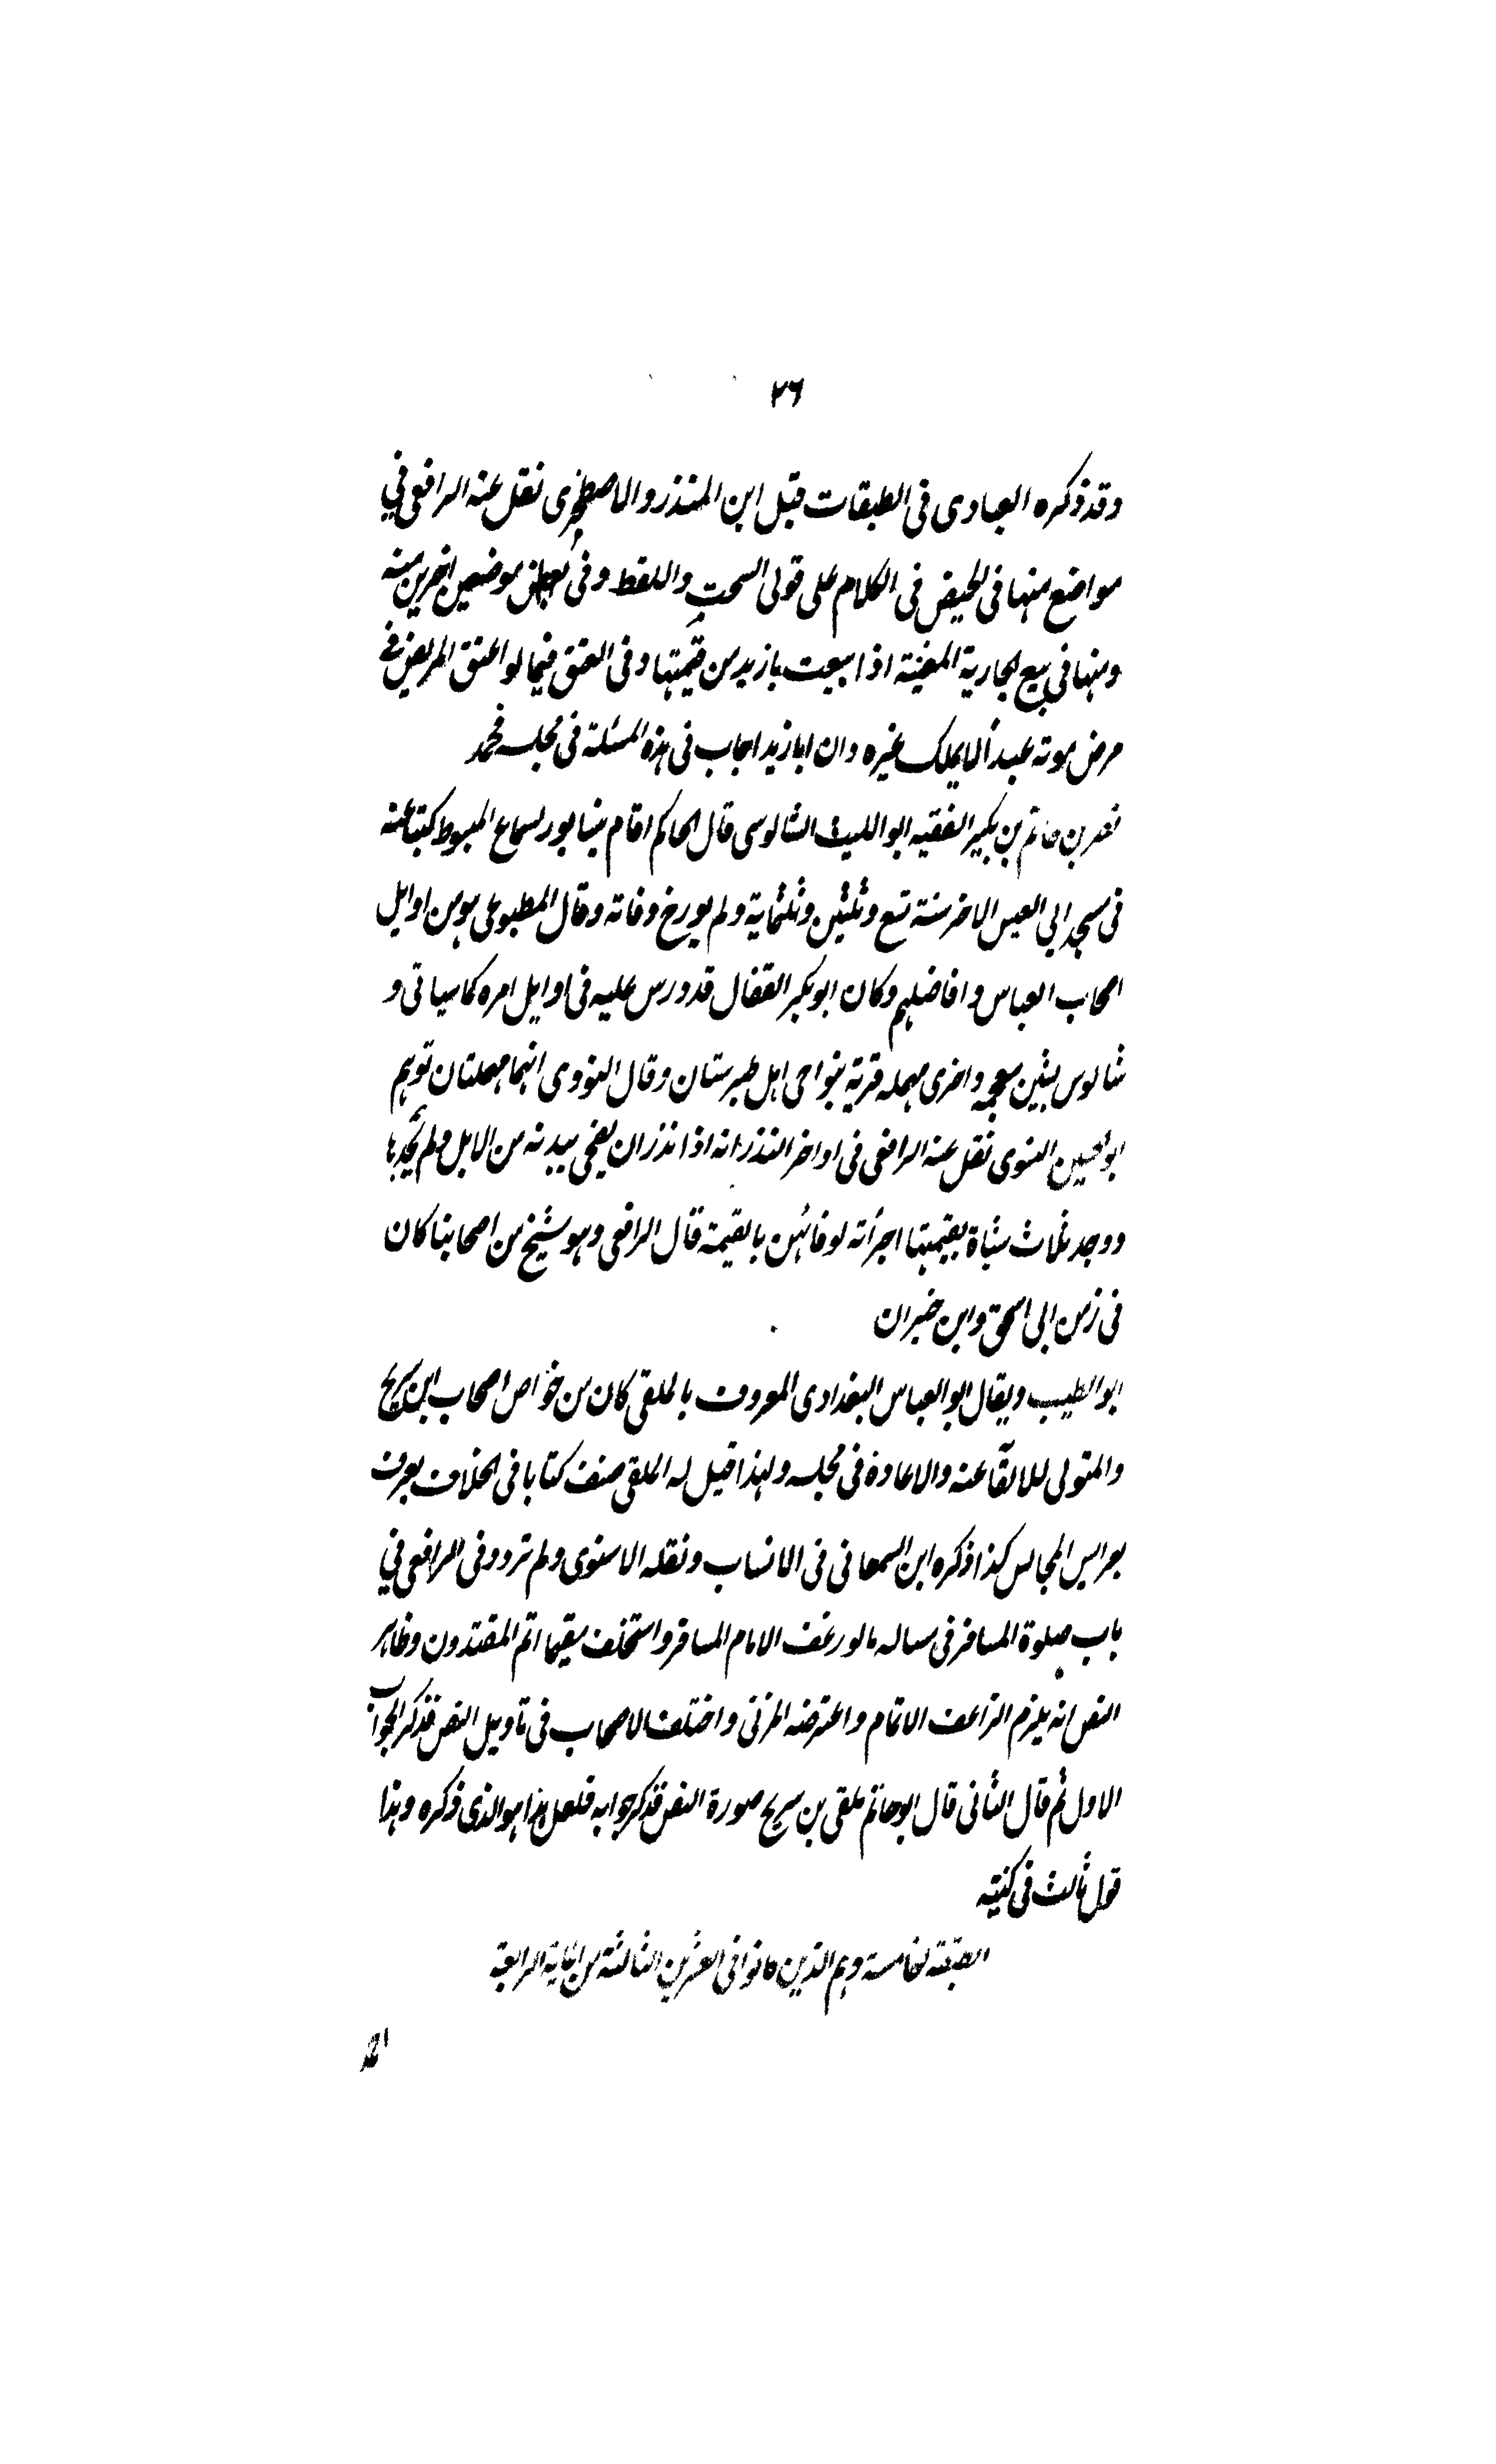 ٧٦
وقد ذكره العبادى فى الطبقات قبل ابن المنذر والاصطخرى نقل عنه الرافعى في
مواضع منها فى الحيض فى الكلام على قولى السحب واللقط وفى موضعين اخرين منه
ومنها في بيع الجارية المغنية اذا بيعت بازيد من قيمتها وفى العتق فيما لو اعتق المريض فے
مرض موته عبدا لا يملك غيره وان ابا زيد اجاب فى هذه المسئلة فى مجلسه محمد
نصر بن حاتم بن بكير الفقيه ابو الليث الشالوسى قال الحاكم اقام بنيسابور لسماع المبسوط كتبنا عنه
فى مسجد ابي العبس الاخر سنة تسع وثلثين وثلثماية ولم يورخ وفاته وقال المطبوعى هو من اوايل
اصحاب العباس وافاضلهم وكان ابو بكر القفال قد درس عليه فى اوايل امره كما سياتى و
شالوس بشين معجمه واخرى مهمله قرية بنواحى اهل طبرستان وقال النووى انهما مهملتان توهم
ابو الحسين النسوى نقل عنه الرافعى فى اواخر النذر انه اذا نذر ان يضحى ببدنه من الابل ولم يجدها
ووجد ثلاث شياة بقيمتها اجزأته لوفائهن بالقيمة قال الرافعى وهو شيخ من اصحابنا كان
فى زمن ابى اسحق وابن خيران
ابو الطيب ويقال ابو العباس البغدادى المعروف بالملقى كان من خواص اصحاب ابن سريج
والمتولى للالقآ عنه والاعادة فى مجلسه ولهذا قيل له الملقى صنف كتابا فى الخلاف يعرف
بعرايس المجالس كذا ذكره ابن السمعانى فى الانساب ونقله الاسنوى ولم تردد وفى الرافعى في
باب صلوة المسافر فى مساله ما لو رعف الامام المسافر واستخلف مقيما اتم المقتدون وظاهر
النص انه يلزم الراعف الاتمام واعترضه المزنى واختلف الاصحاب فى تاويل النص فذكر الجواب
الاول ثم قال الثانى قال ابو حاتم ملقى بن سريج صورة النص فذكر جوابه فلعل هذا هو الذى ذكره وهذا
قول ثالث فى كنيته
الطبقة الخامسة وهم الذين كانوا فى العشرين الثالثة من المائة الرابعة